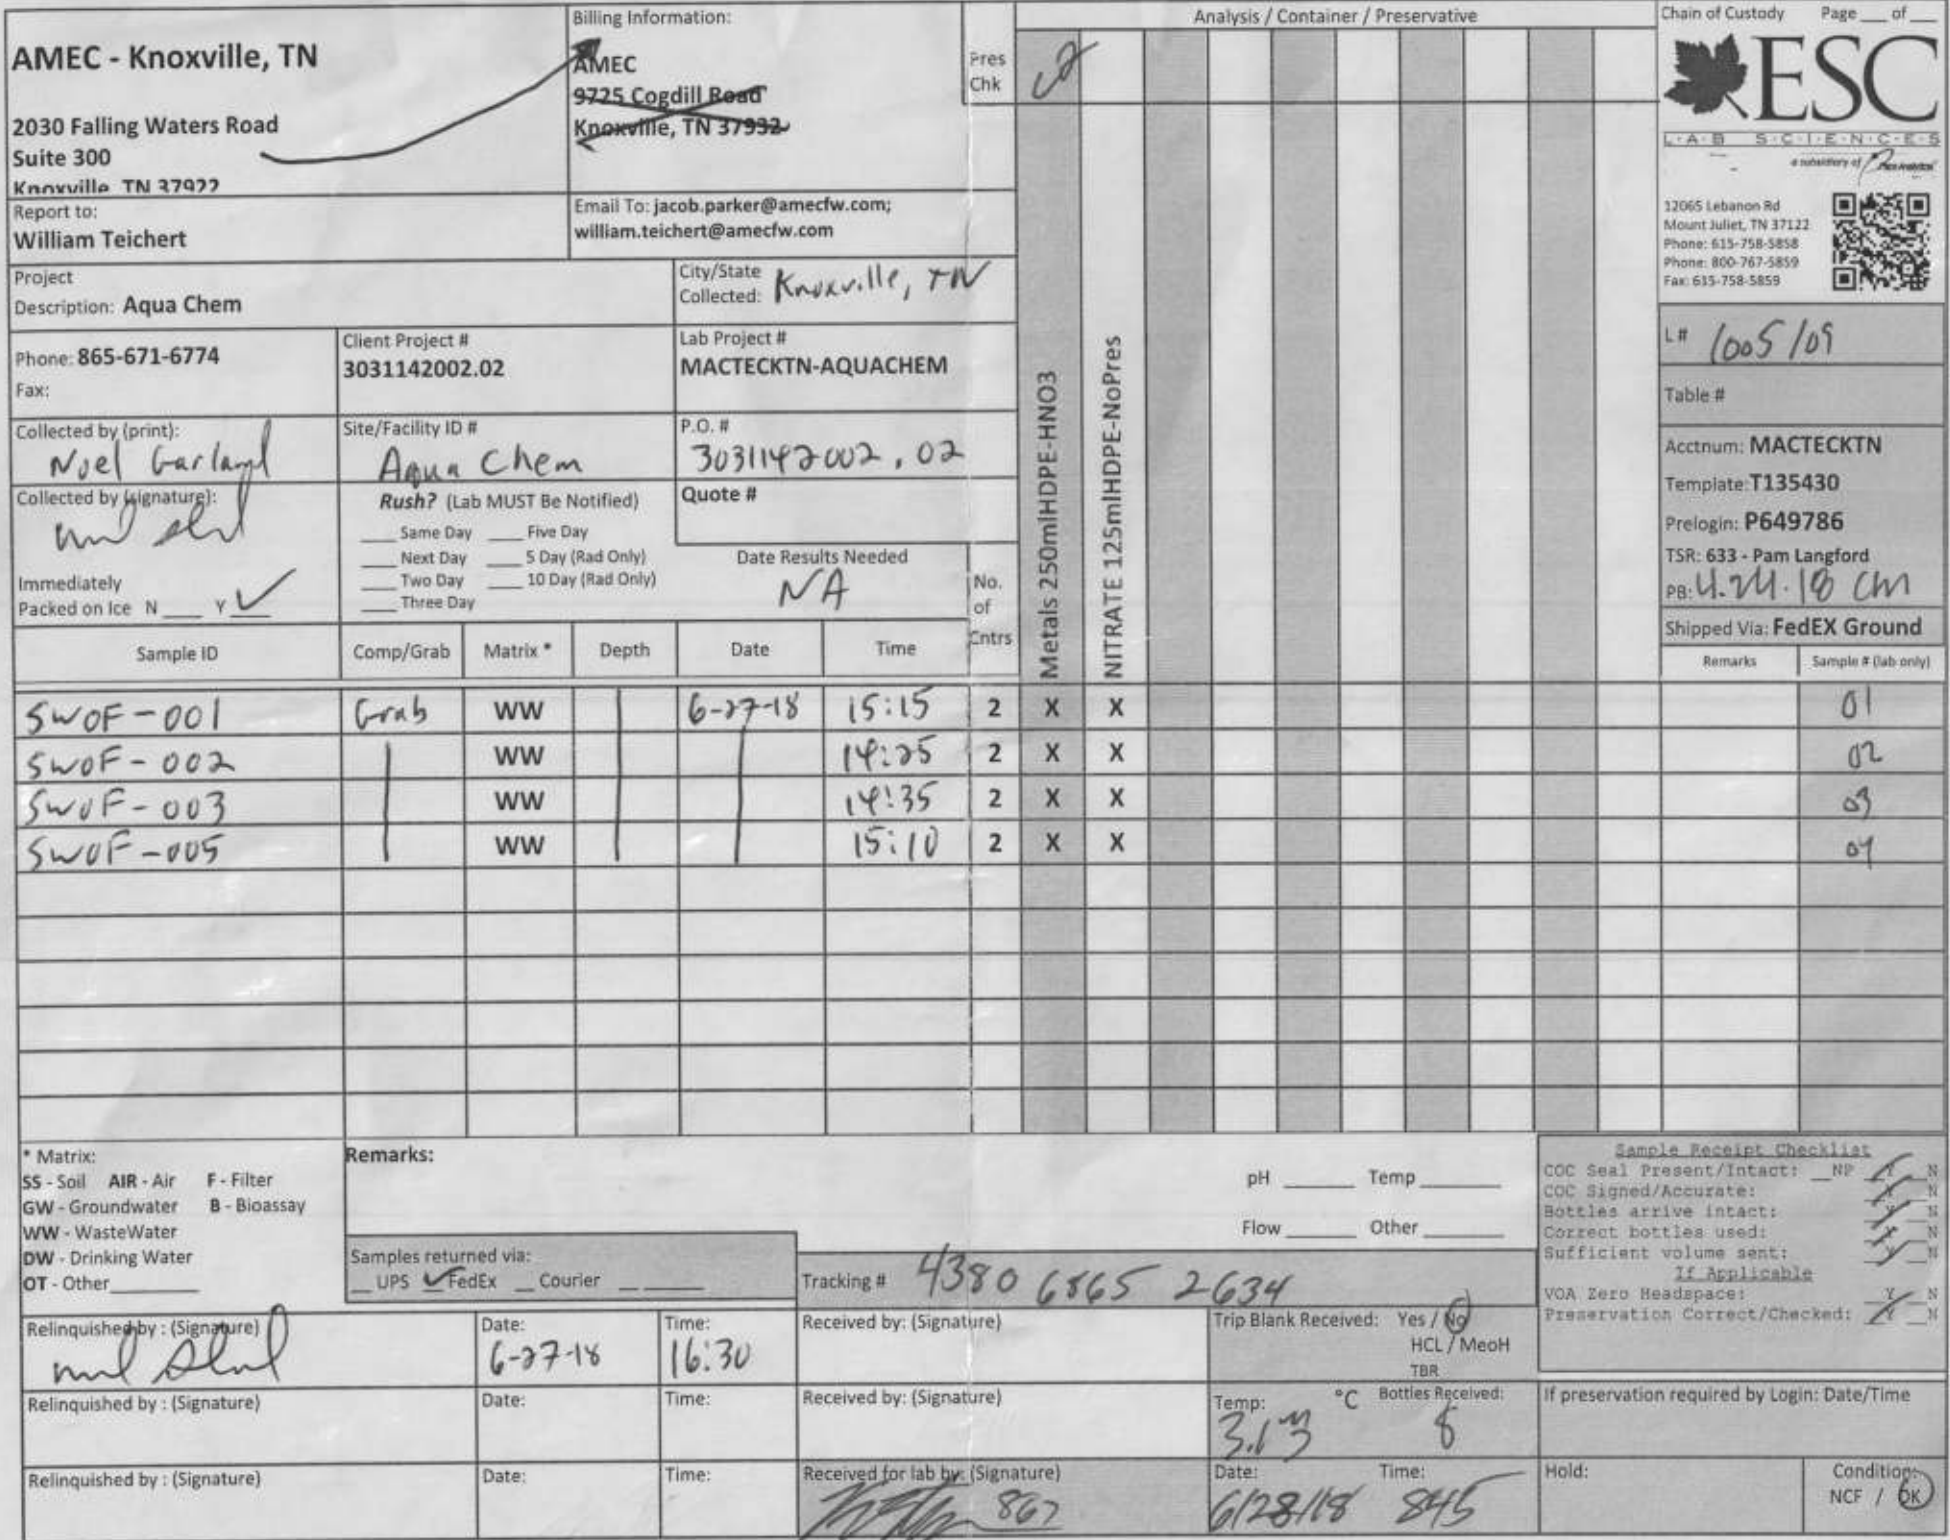 AMEC - Knoxville, TN
2030 Falling Waters Road
Suite 300
Knoxville, TN 37922
Billing Information:
AMEC
9725 Cogdill Road
Knoxville, TN 37932
Pres
Chk
Analysis / Container / Preservative
Chain of Custody Page ___ of ___
ESC
L·A·B S·C·I·E·N·C·E·S
a subsidiary of
12065 Lebanon Rd
Mount Juliet, TN 37122
Phone: 615-758-5858
Phone: 800-767-5859
Fax: 615-758-5859
Report to:
William Teichert
Email To: jacob.parker@amecfw.com;
william.teichert@amecfw.com
Project
Description: Aqua Chem
City/State
Collected: Knoxville, TN
Phone: 865-671-6774
Fax:
Client Project #
3031142002.02
Lab Project #
MACTECKTN-AQUACHEM
L# 1005109
Table #
Collected by (print):
Noel Garland
Site/Facility ID #
Aqua Chem
P.O. #
3031142002.02
Acctnum: MACTECKTN
Template: T135430
Prelogin: P649786
TSR: 633 - Pam Langford
PB: 4.24.18 CM
Shipped Via: FedEX Ground
Collected by (signature):
Immediately
Packed on Ice N ___ Y ✓
Rush? (Lab MUST Be Notified)
___ Same Day ___ Five Day
___ Next Day ___ 5 Day (Rad Only)
___ Two Day ___ 10 Day (Rad Only)
___ Three Day
Quote #
Date Results Needed
NA
No.
of
Cntrs
Metals 250mlHDPE-HNO3
NITRATE 125mlHDPE-NoPres
Sample ID Comp/Grab Matrix * Depth Date Time Remarks Sample # (lab only)
SWOF-001 Grab WW 6-27-18 15:15 2 X X 01
SWOF-002 WW 14:25 2 X X 02
SWOF-003 WW 14:35 2 X X 03
SWOF-005 WW 15:10 2 X X 04
* Matrix:
SS - Soil AIR - Air F - Filter
GW - Groundwater B - Bioassay
WW - WasteWater
DW - Drinking Water
OT - Other
Remarks:
pH ___ Temp ___
Flow ___ Other ___
Samples returned via:
__ UPS ✓ FedEx __ Courier
Tracking # 4380 6865 2634
Sample Receipt Checklist
COC Seal Present/Intact: __NP Y N
COC Signed/Accurate: Y N
Bottles arrive intact: Y N
Correct bottles used: Y N
Sufficient volume sent: Y N
If Applicable
VOA Zero Headspace: Y N
Preservation Correct/Checked: Y N
Relinquished by : (Signature)
Date:
6-27-18
Time:
16:30
Received by: (Signature)
Trip Blank Received: Yes / No
HCL / MeoH
TBR
Relinquished by : (Signature)
Date:
Time:
Received by: (Signature)
Temp: °C Bottles Received:
8
If preservation required by Login: Date/Time
Relinquished by : (Signature)
Date:
Time:
Received for lab by: (Signature)
867
Date: Time:
6/28/18 845
Hold:
Condition:
NCF / OK